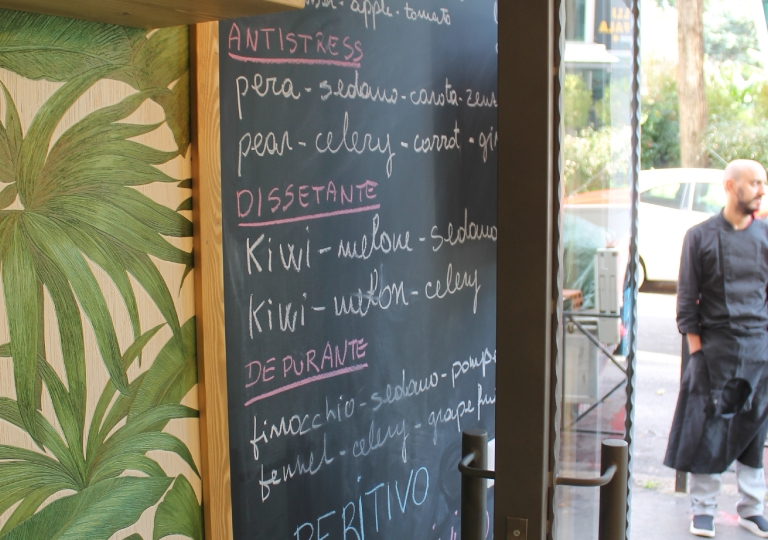 apple-tomato
ANTISTRESS
pera-sedano-carota-zen
pear-celery-carrot-gi
DISSETANTE
Kiwi-melone-sedano
Kiwi-melon-celery
DEPURANTE
finocchio-sedano-pompe
fennel-celery-grapefrui
PERITIVO